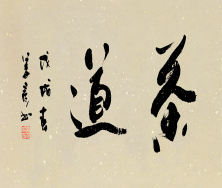 茶道
戊戌春